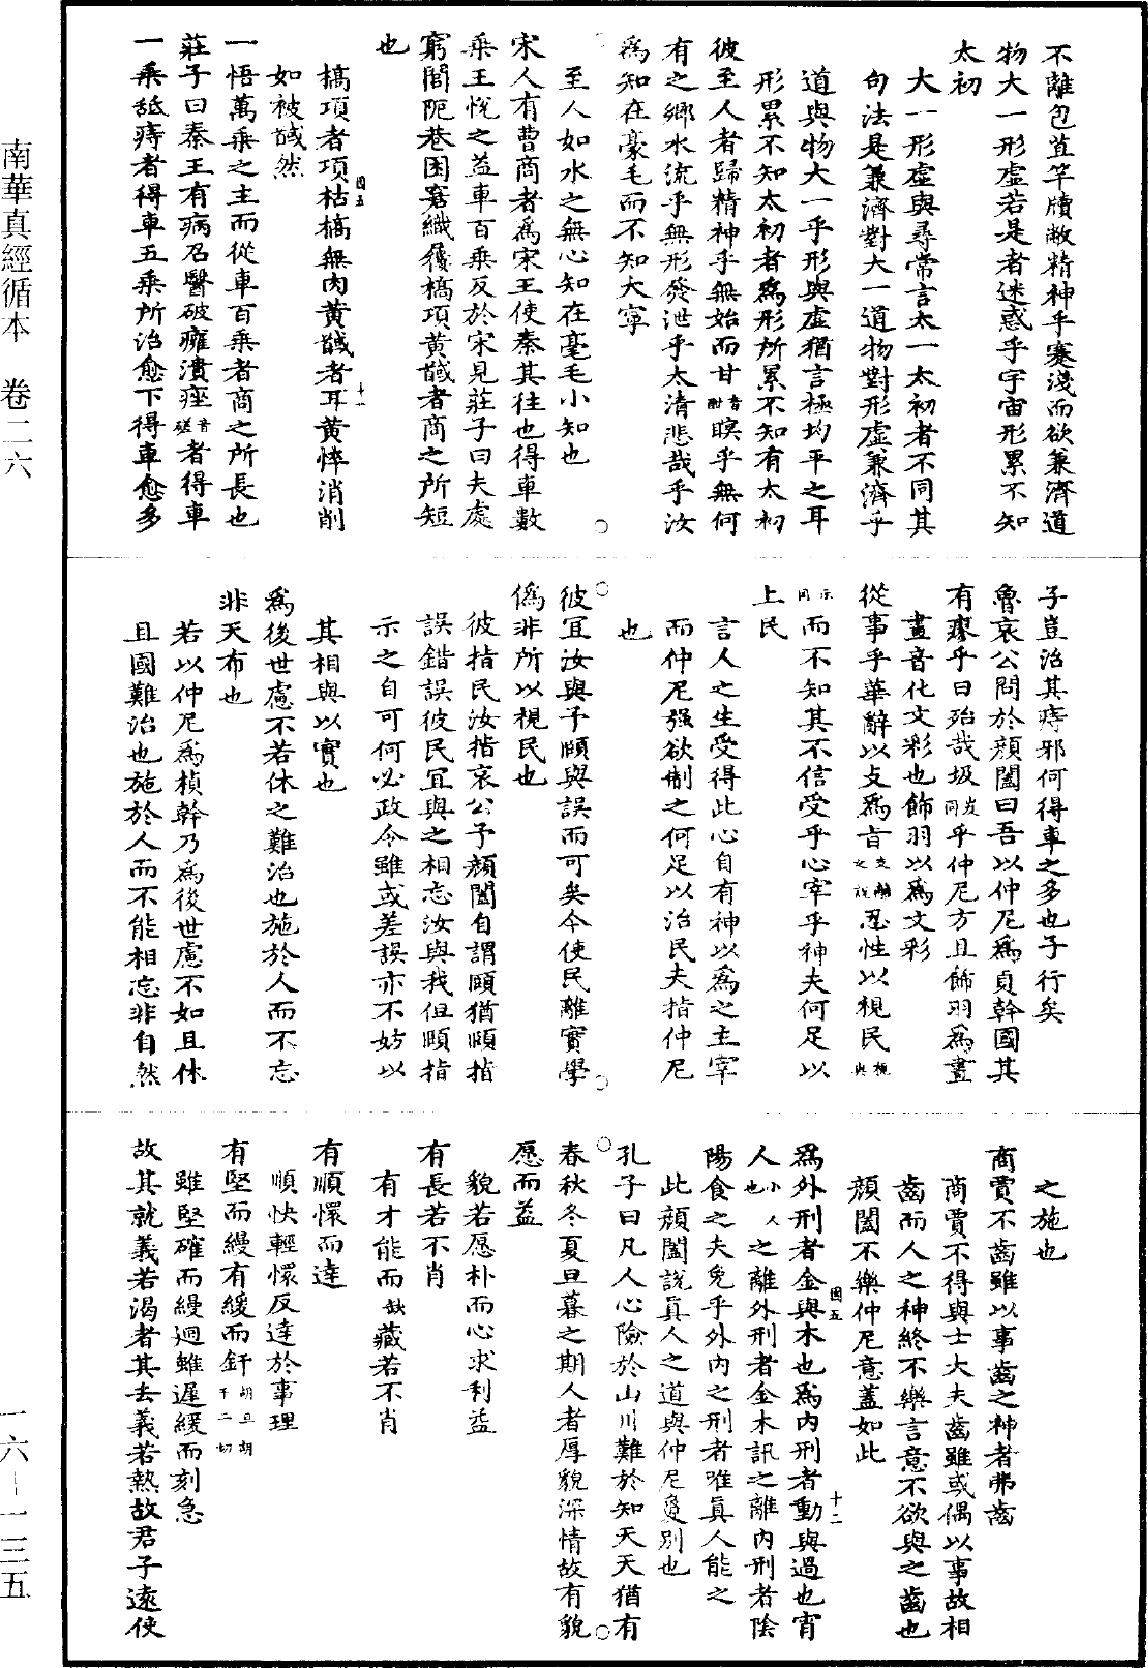 不離包苴竿牘敝精神乎蹇淺而欲兼濟道
物大一形虛若是者迷惑乎宇宙形累不知
太初
大一形虛與尋常言太一太初者不同其
句法是兼濟對大一道物對形虛兼濟乎
道與物大一乎形與虛猶言極均平之耳
形累不知太初者為形所累不知有太初
彼至人者歸精神乎無始而甘音酣瞑乎無何
有之鄉水流乎無形發泄乎太清悲哉乎汝
為知在毫毛而不知大寧
至人如水之無心知在毫毛小知也
宋人有曹商者為宋王使秦其往也得車數
乘王悅之益車百乘反於宋見莊子曰夫處
窮閭阨巷困窘織屨槁項黃馘者商之所短
也
槁項者項枯槁無肉黃馘者耳黃悴消削
如被馘然
一悟萬乘之主而從車百乘者商之所長也
莊子曰秦王有病召醫破癰潰痤音矬者得車
一乘舐痔者得車五乘所治愈下得車愈多
子豈治其痔邪何得車之多也子行矣
魯哀公問於顏闔曰吾以仲尼為貞幹國其
有瘳乎曰殆哉圾岌同乎仲尼方且飾羽為畫
畫音化文彩也飾羽以為文彩
從事乎華辭以支為旨支離之說忍性以視民視與
示同而不知其不信受乎心宰乎神夫何足以
上民
言人之生受得此心自有神以為之主宰
而仲尼强欲制之何足以治民夫指仲尼
也
彼宜汝與予頤與誤而可矣今使民離實學
偽非所以視民也
彼指民汝指哀公予顏闔自謂頤猶頤指
誤錯誤彼民宜與之相忘汝與我但頤指
示之自可何必政令雖或差誤亦不妨以
其相與以實也
為後世慮不若休之難治也施於人而不忘
非天布也
若以仲尼為楨幹乃為後世慮不如且休
且國難治也施於人而不能相忘非自然
之施也
商賈不齒雖以事齒之神者弗齒
商賈不得與士大夫齒雖或偶以事故相
齒而人之神終不樂言意不欲與之齒也
顏闔不樂仲尼意蓋如此
為外刑者金與木也為內刑者動與過也宵
人小人也之離外刑者金木訊之離內刑者陰
陽食之夫免乎外內之刑者唯真人能之
此顏闔說真人之道與仲尼夐別也
孔子曰凡人心險於山川難於知天天猶有
春秋冬夏旦暮之期人者厚貌深情故有貌
愿而益
貌若愿朴而心求利益
有長若不肖
有才能而缺藏若不肖
有順懁而達
順快輕懁反達於事理
有堅而縵有緩而釬胡旦胡干二切
雖堅確而縵迴雖遲緩而刻急
故其就義若渴者其去義若熱故君子遠使
因五
十一
因五
十二
南華真經循本 卷二六
一六-一三五